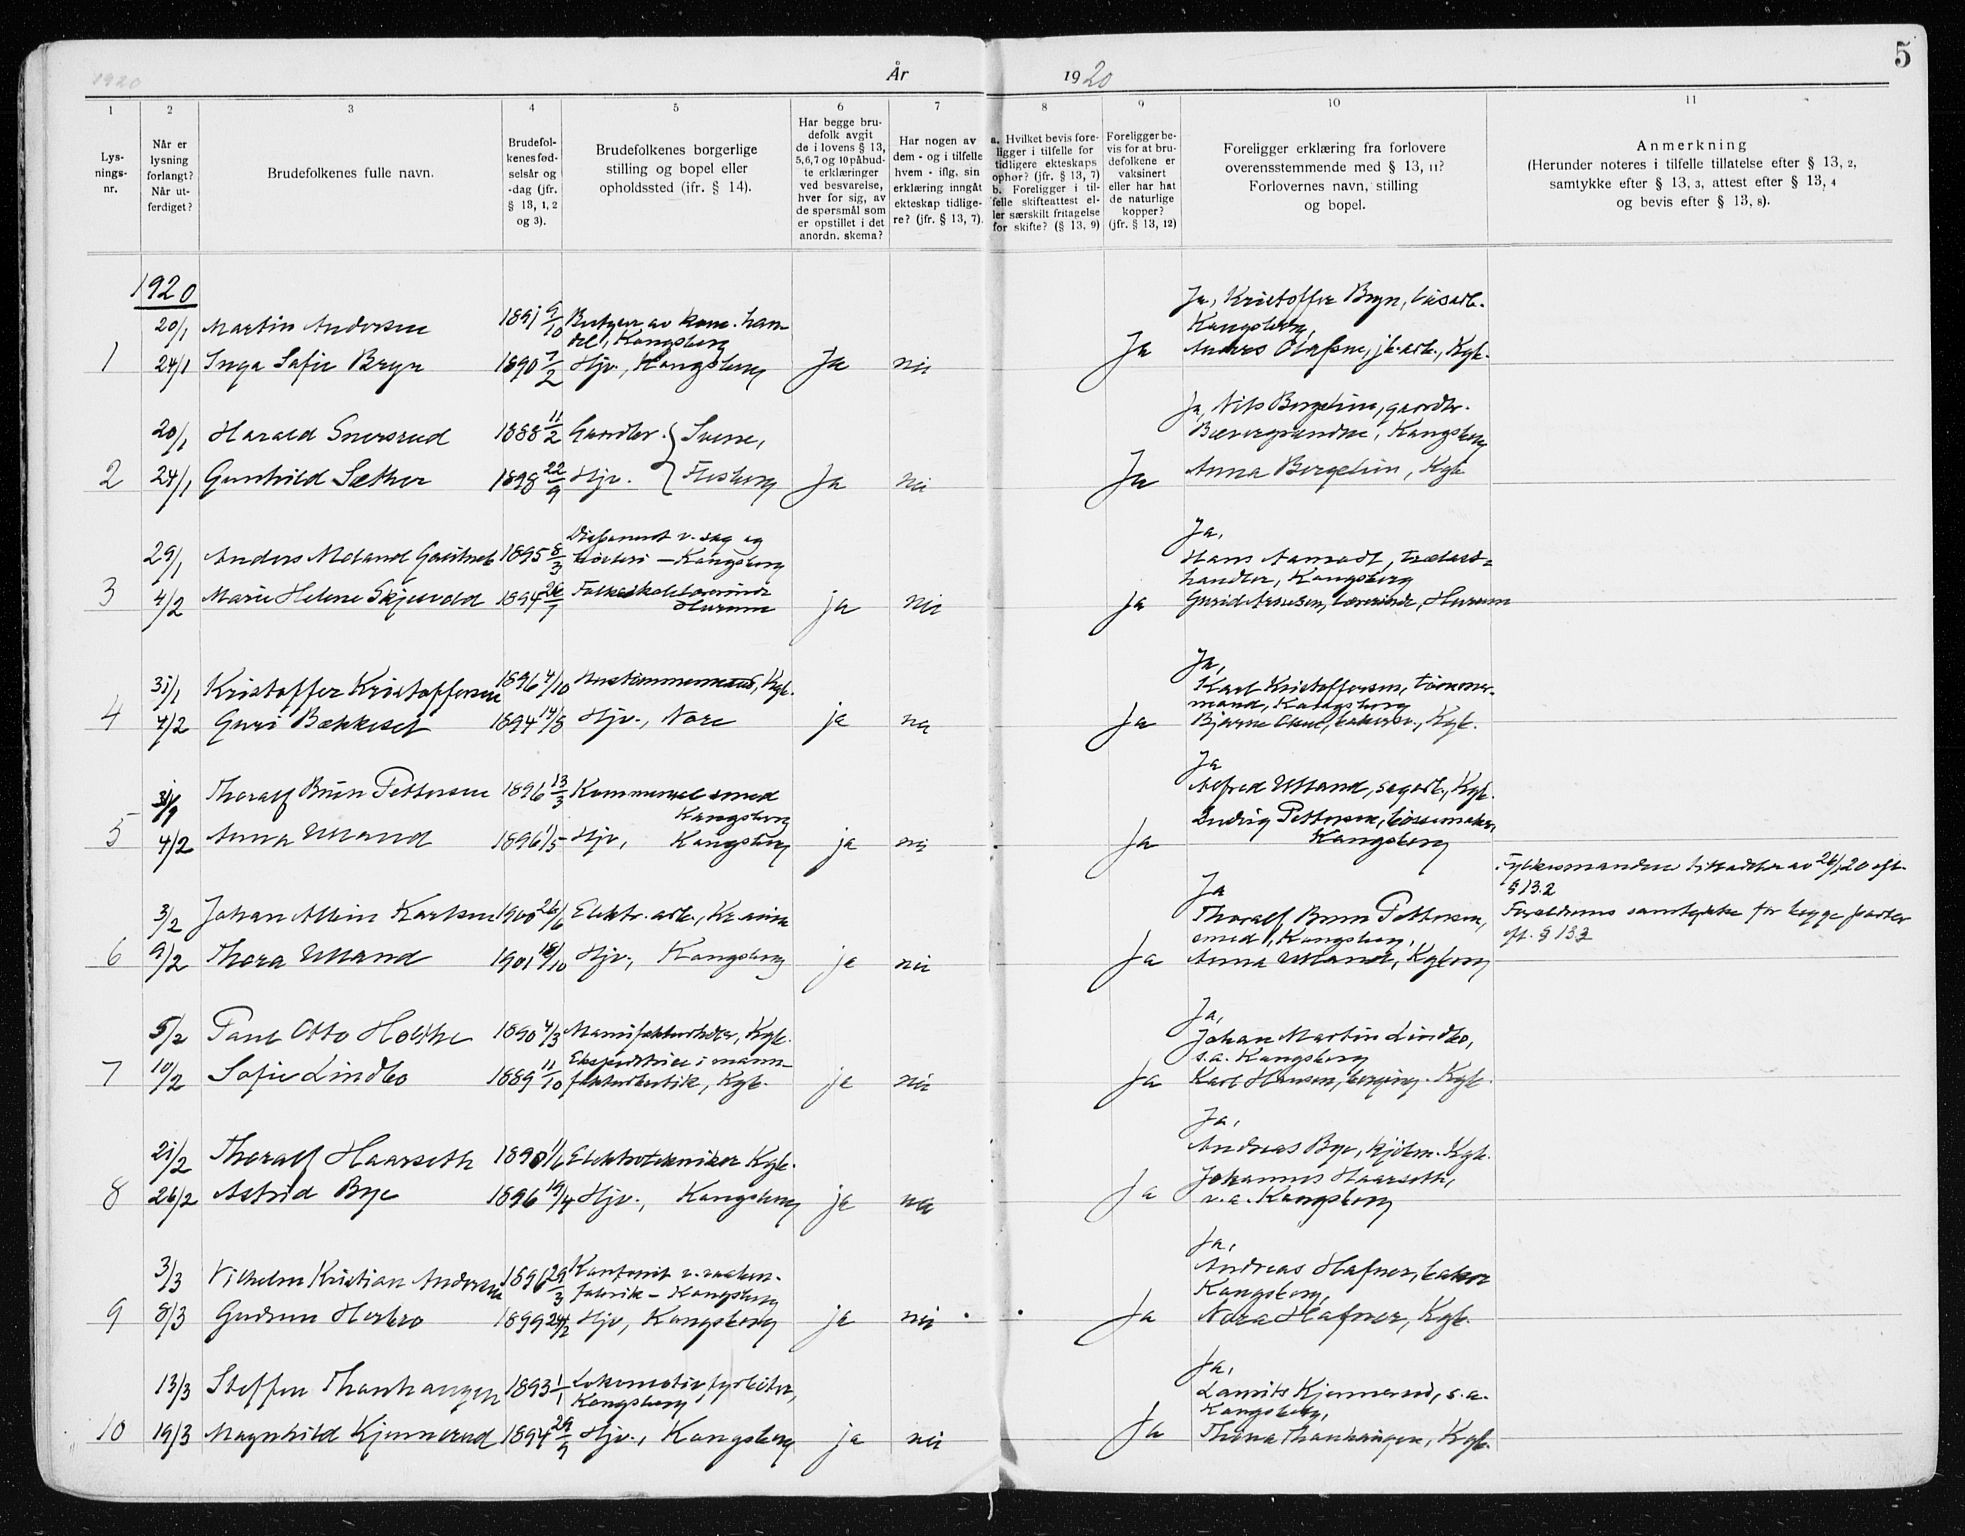 5
1920
År 1920
1
2
3
4
5
6
7
8
9
10
11
Lysningsnr.
Når er lysning forlangt? Når utferdiget?
Brudefolkenes fulle navn.
Brudefolkenes fødselsår og -dag (jfr. § 13, 1, 2 og 3).
Brudefolkenes borgerlige stilling og bopel eller opholdssted (jfr. § 14).
Har begge brudefolk avgit de i lovens § 13, 5,6,7 og 10 påbudte erklæringer ved besvarelse, hver for sig, av de spørsmål som er opstillet i det anordn. skema?
Har nogen av dem - og i tilfelle hvem - iflg. sin erklæring inngått ekteskap tidligere? (jfr. § 13, 7).
a. Hvilket bevis foreligger i tilfelle for tidligere ekteskaps ophør? (jfr. § 13, 7) b. Foreligger i tilfelle skifteattest eller særskilt fritagelse for skifte? (§ 13, 9)
Foreligger bevis for at brudefolkene er vaksinert eller har hat de naturlige kopper? (jfr. § 13, 12)
Foreligger erklæring fra forlovere overensstemmende med § 13, 11? Forlovernes navn, stilling og bopel.
Anmerkning (Herunder noteres i tilfelle tillatelse efter § 13, 2, samtykke efter § 13, 3, attest efter § 13, 4 og bevis efter § 13, 8).
1920
20/1 Martin Andersen 1891 9/10 Bestyrer av kom. handel, Kongsberg Ja, Kristoffer Bryn, Kongsberg,
1 24/1 Inga Sofie Bryn 1890 7/2 Hjv., Kongsberg Ja nei Ja Anders Olafsen, Kgb.
20/1 Harald Snersrud 1888 11/2 Gaardbr. Svene, Ja, Nils Bergelien, gaardbr. Kongsberg
2 24/1 Gunhild Sæther 1898 22/9 Hjv. Flesberg Ja nei Ja Anna Bergelien, Kgb
29/1 Anders Meland 1895 8/3 Disponent v. sag og høvleri — Kongsberg Ja, Hans Aamodt, trælasthandler, Kongsberg
3 4/2 Marie Helene Skjesvold 1894 Folkeskolelærerinde Hurum ja nei Ja Gurid Arnesen, lærerinde, Hurum
31/1 Kristoffer Kristoffersen 1896 4/10 Kgb. Ja, Karl Kristoffersen, tømmermand, Kongsberg
4 4/2 Guri Bækkeset 1894 14/8 Hjv., Nore ja nei Ja Bjarne Kgb.
31/1 Thoralf Brun Pettersen 1896 13/3 smed Kongsberg Ja Alfred Ulland, sagarb., Kgb.
5 4/2 Anna Ulland 1896 1/5 Hjv, Kongsberg ja nei Ja Ludvig Pettersen, bøssemaker, Kongsberg
3/2 Johan Albin Karlsen 1900 26/6 Elektr. arb., Kr.ania Ja Thoralf Brun Pettersen, smed, Kongsberg, Fylkesmandens tilladelse av 26/1 20 eft. § 13.2
6 9/2 Thora Ulland 1901 18/10 Hjv., Kongsberg ja nei Ja Anna Ulland, Kgberg Forældrenes samtykke for begge parter eft. § 13 3
5/2 Paul Otto Holthe 1890 4/3 Manufakturhdler, Kgb. Ja, Johan Martin Lindbo, s.a. Kongsberg
7 10/2 Sofie Lindbo 1889 11/10 Ekspeditrice i manufakturbutik, Kgb. ja nei Ja Karl Hansen, Kgb.
21/2 Thoralf Haarseth 1890 1/6 Elektrotekniker Kgb. Ja, Andreas Bye, kjøbm. Kgb.
8 26/2 Astrid Bye 1896 19/4 Hjv., Kongsberg ja nei Ja Johannes Haarseth, v.a. Kongsberg
3/3 Vilhelm Kristian Andersen 1896 29/3 Kontorist v. vaabenfabrik — Kongsberg Ja, Andreas Hafner, baker Kongsberg,
9 8/3 Gudrun Horbro 1899 24/2 Hjv, Kongsberg ja nei Ja Nora Hafner, Kgb.
13/3 Steffen Thonhaugen 1893 1/1 Lokomotivfyrbøter, Kongsberg Ja, Laurits Kjennerud, s.a. Kongsberg,
10 19/3 Magnhild Kjennerud 1894 29/9 Hjv., Kongsberg ja nei Ja Thonhaugen, Kgb.